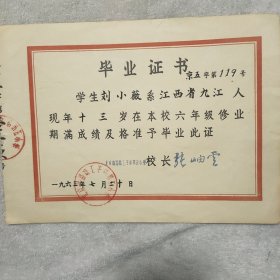 毕业证书
京五字第119号
学生刘小薇系江西省九江人
现年十三岁在本校六年级修业
期满成绩及格准予毕业此证
校长 张岫云
一九六三年七月二十日